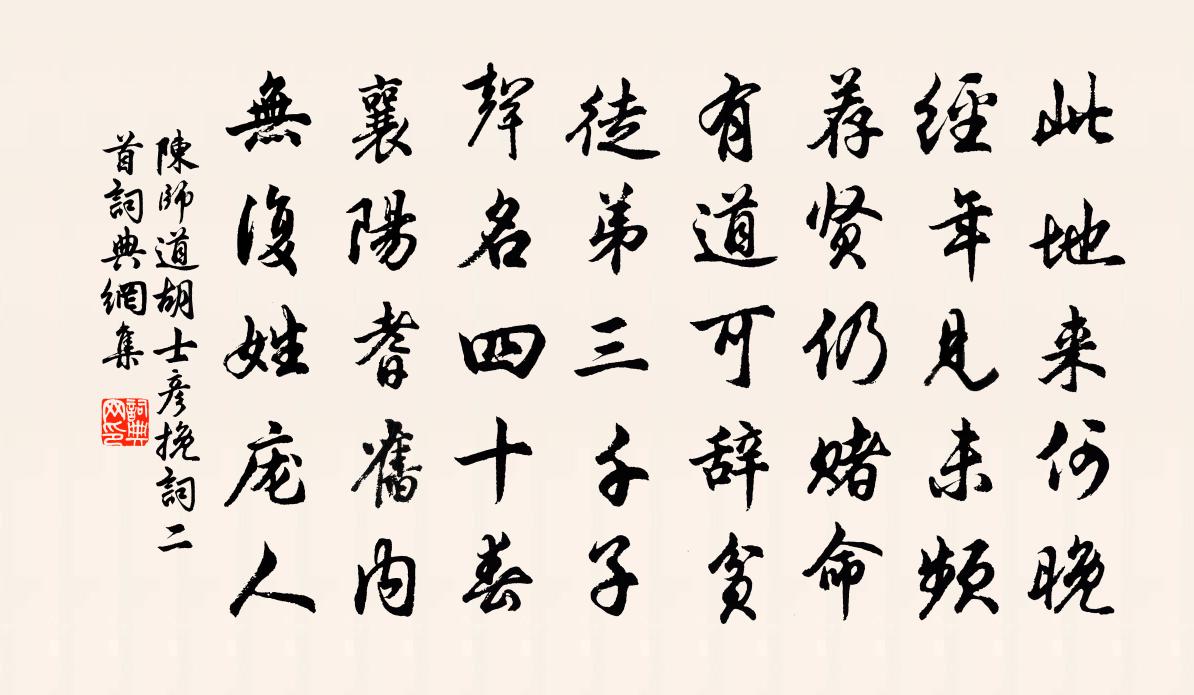 此地来何晚
經年見未頻
荐贤仍赌命
有道可辞貧
徒弟三千子
聲名四十春
襄陽耆舊内
無復姓庞人
陳師道胡士彦挽詞二
首詞典網集
詞典
网印